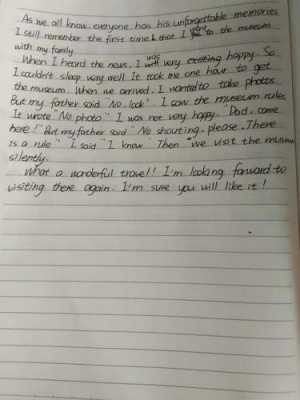 As we all know, everyone has his unforgettable memories.
I still remember the first time that I to the museum
with my family.
When I heard the news, I was very exciting happy. So
I couldn't sleep very well. It took me one hour to get
the museum. When we arrived, I wanted to take photos.
But my father said "No, look". I saw the museum rules,
It wrote "No photo" I was not very happy. "Dad, come
here!" But my father said "No shouting, please. There
is a rule" I said "I know. Then we visit the museum
silently.
What a wonderful travel! I'm looking forward to
visiting there again. I'm sure you will like it!